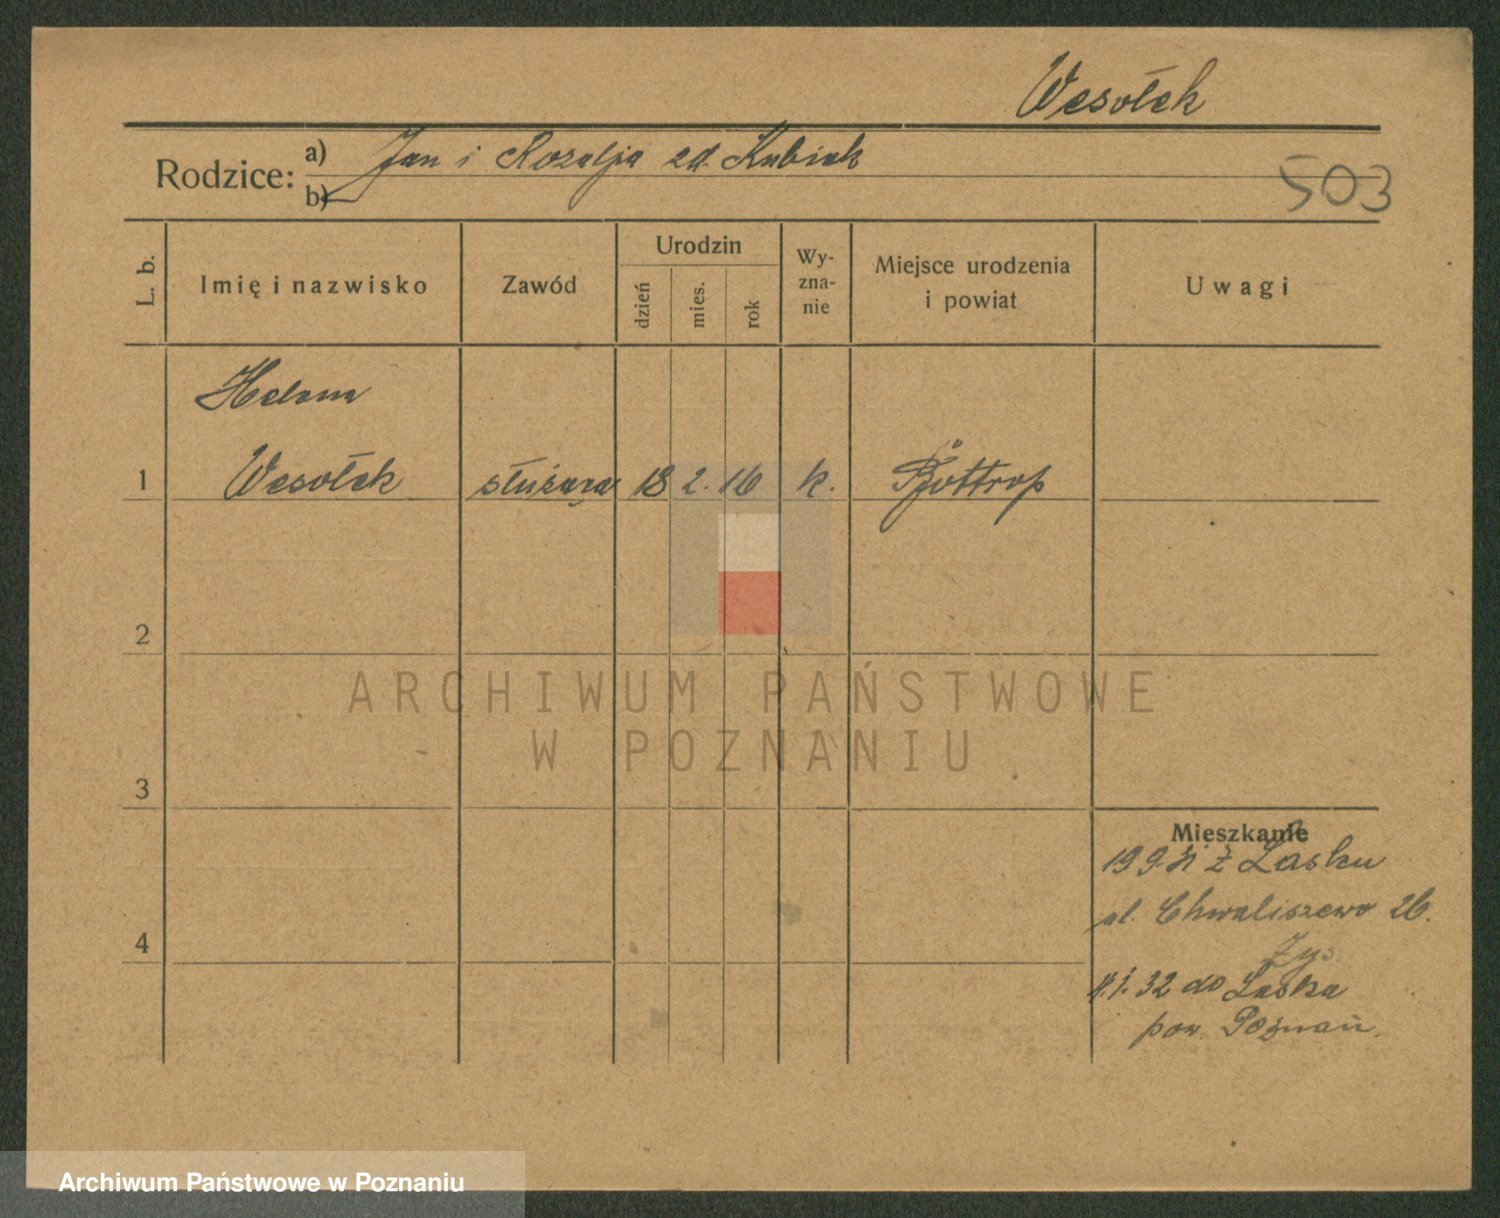 Wesołek
Rodzice: a) Jan i Rozalja zd. Kubiak
b)
503
L. b.
Imię i nazwisko
Zawód
Urodzin
dzień
mies.
rok
Wy-
zna-
nie
Miejsce urodzenia
i powiat
Uwagi
Helena
1 Wesołek służąca 18 2. 16 k. Böttrop
2
3
4
Mieszkanie
19.9. z Lasku
ul. Chwaliszewo 26.
Zys.
4.1.32 do Laska
pow. Poznań.
ARCHIWUM PAŃSTWOWE
W POZNANIU
Archiwum Państwowe w Poznaniu